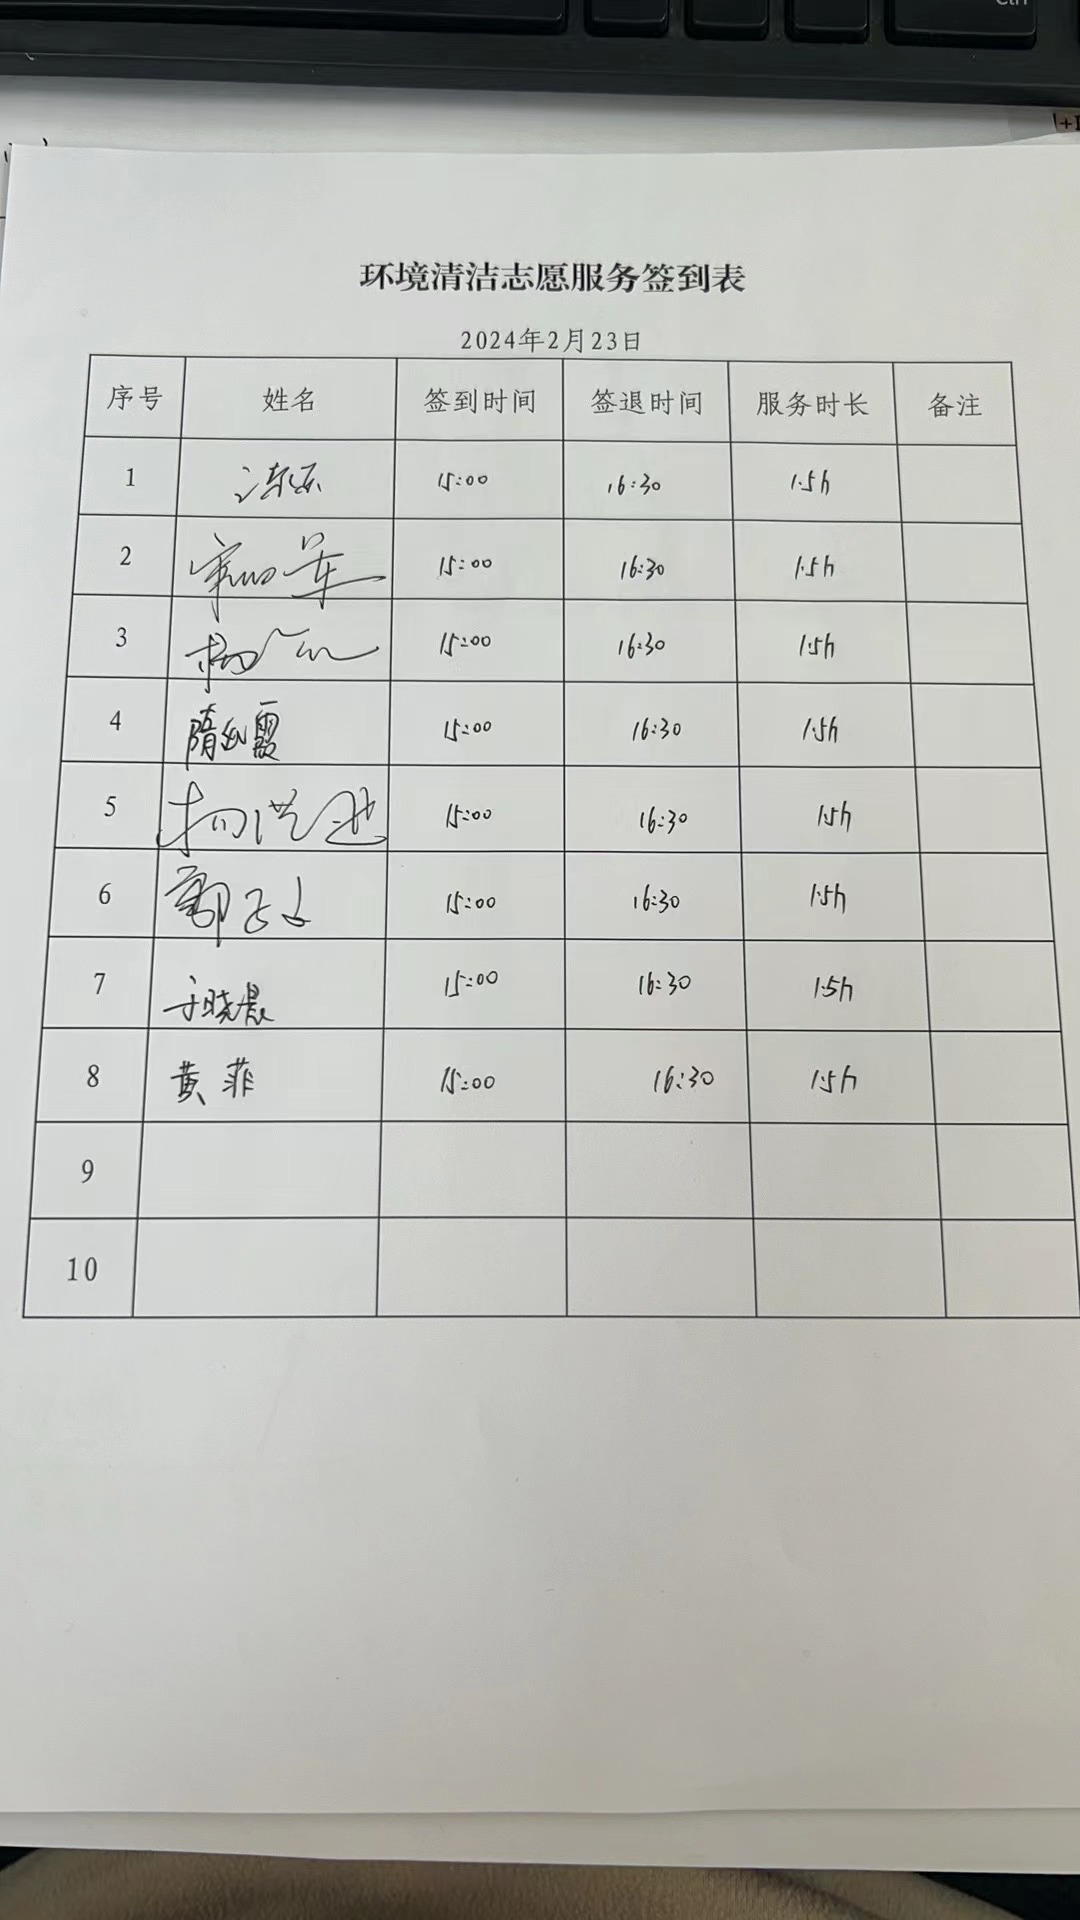 Ctrl
环境清洁志愿服务签到表
2024年2月23日
序号 姓名 签到时间 签退时间 服务时长 备注
1 15:00 16:30 1.5h
2 15:00 16:30 1.5h
3 15:00 16:30 1.5h
4 15:00 16:30 1.5h
5 15:00 16:30 1.5h
6 15:00 16:30 1.5h
7 于晓晨 15:00 16:30 1.5h
8 黄菲 15:00 16:30 1.5h
9
10